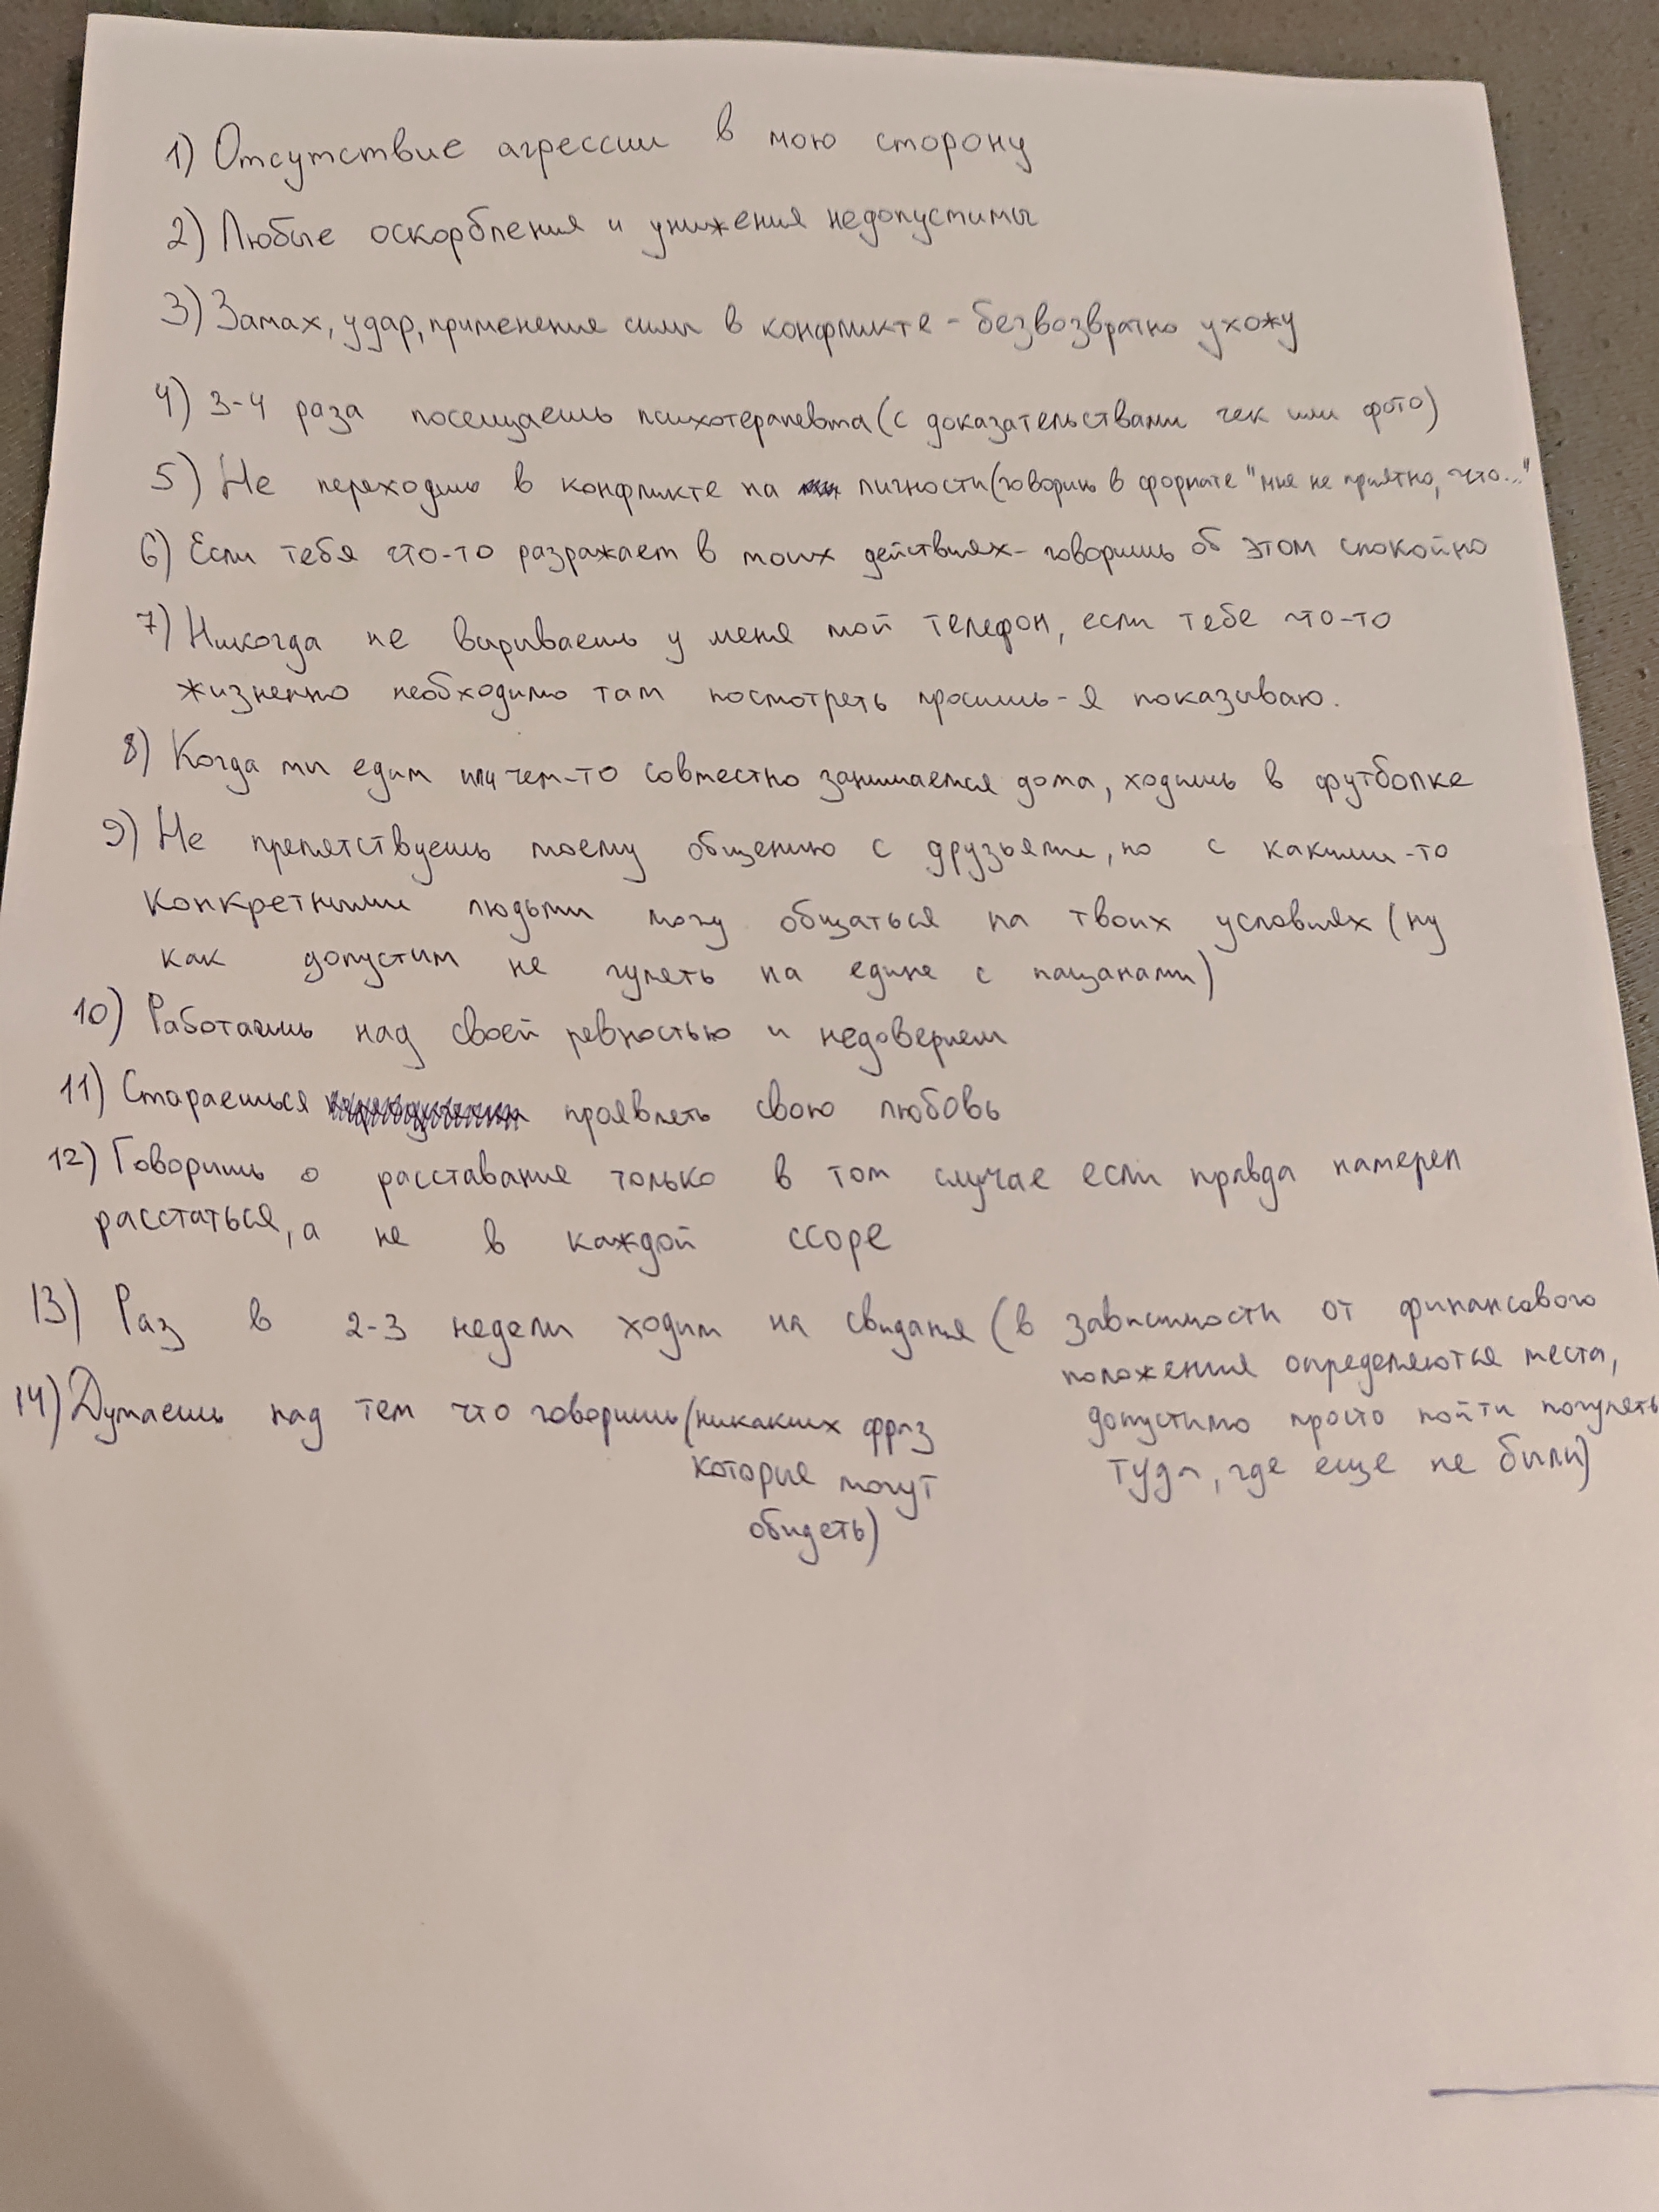 1) Отсутствие агрессии в мою сторону
2) Любые оскорбления и унижения недопустимы
3) Замах, удар, применение силы в конфликте - безвозвратно ухожу
4) 3-4 раза посещаешь психотерапевта (с доказательствами чек или фото)
5) Не переходишь в конфликте на личности (говоришь в формате "мне не приятно, что..."
6) Если тебя что-то разражает в моих действиях - говоришь об этом спокойно
7) Никогда не вырываешь у меня мой телефон, если тебе что-то
жизненно необходимо там посмотреть просишь - я показываю.
8) Когда мы едим или чем-то совместно занимаемся дома, ходишь в футболке
9) Не препятствуешь моему общению с друзьями, но с какими-то
конкретными людьми могу общаться на твоих условиях (ну
как допустим не гулять на едине с пацанами)
10) Работаешь над своей ревностью и недоверием
11) Стараешься проявлять свою любовь
12) Говоришь о расставание только в том случае если правда намерен
расстаться, а не в каждой ссоре
13) Раз в 2-3 недели ходим на свидания (в зависимости от финансового
положения определяються места,
допустимо просто пойти погулять
туда, где еще не были)
14) Думаешь над тем что говоришь (никаких фраз
которые могут
обидеть)